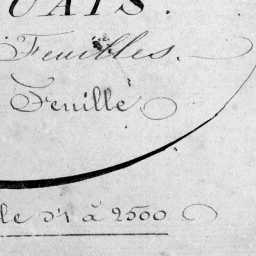 UAIS.
Feuilles.
Feuille
le d'1 à 2500